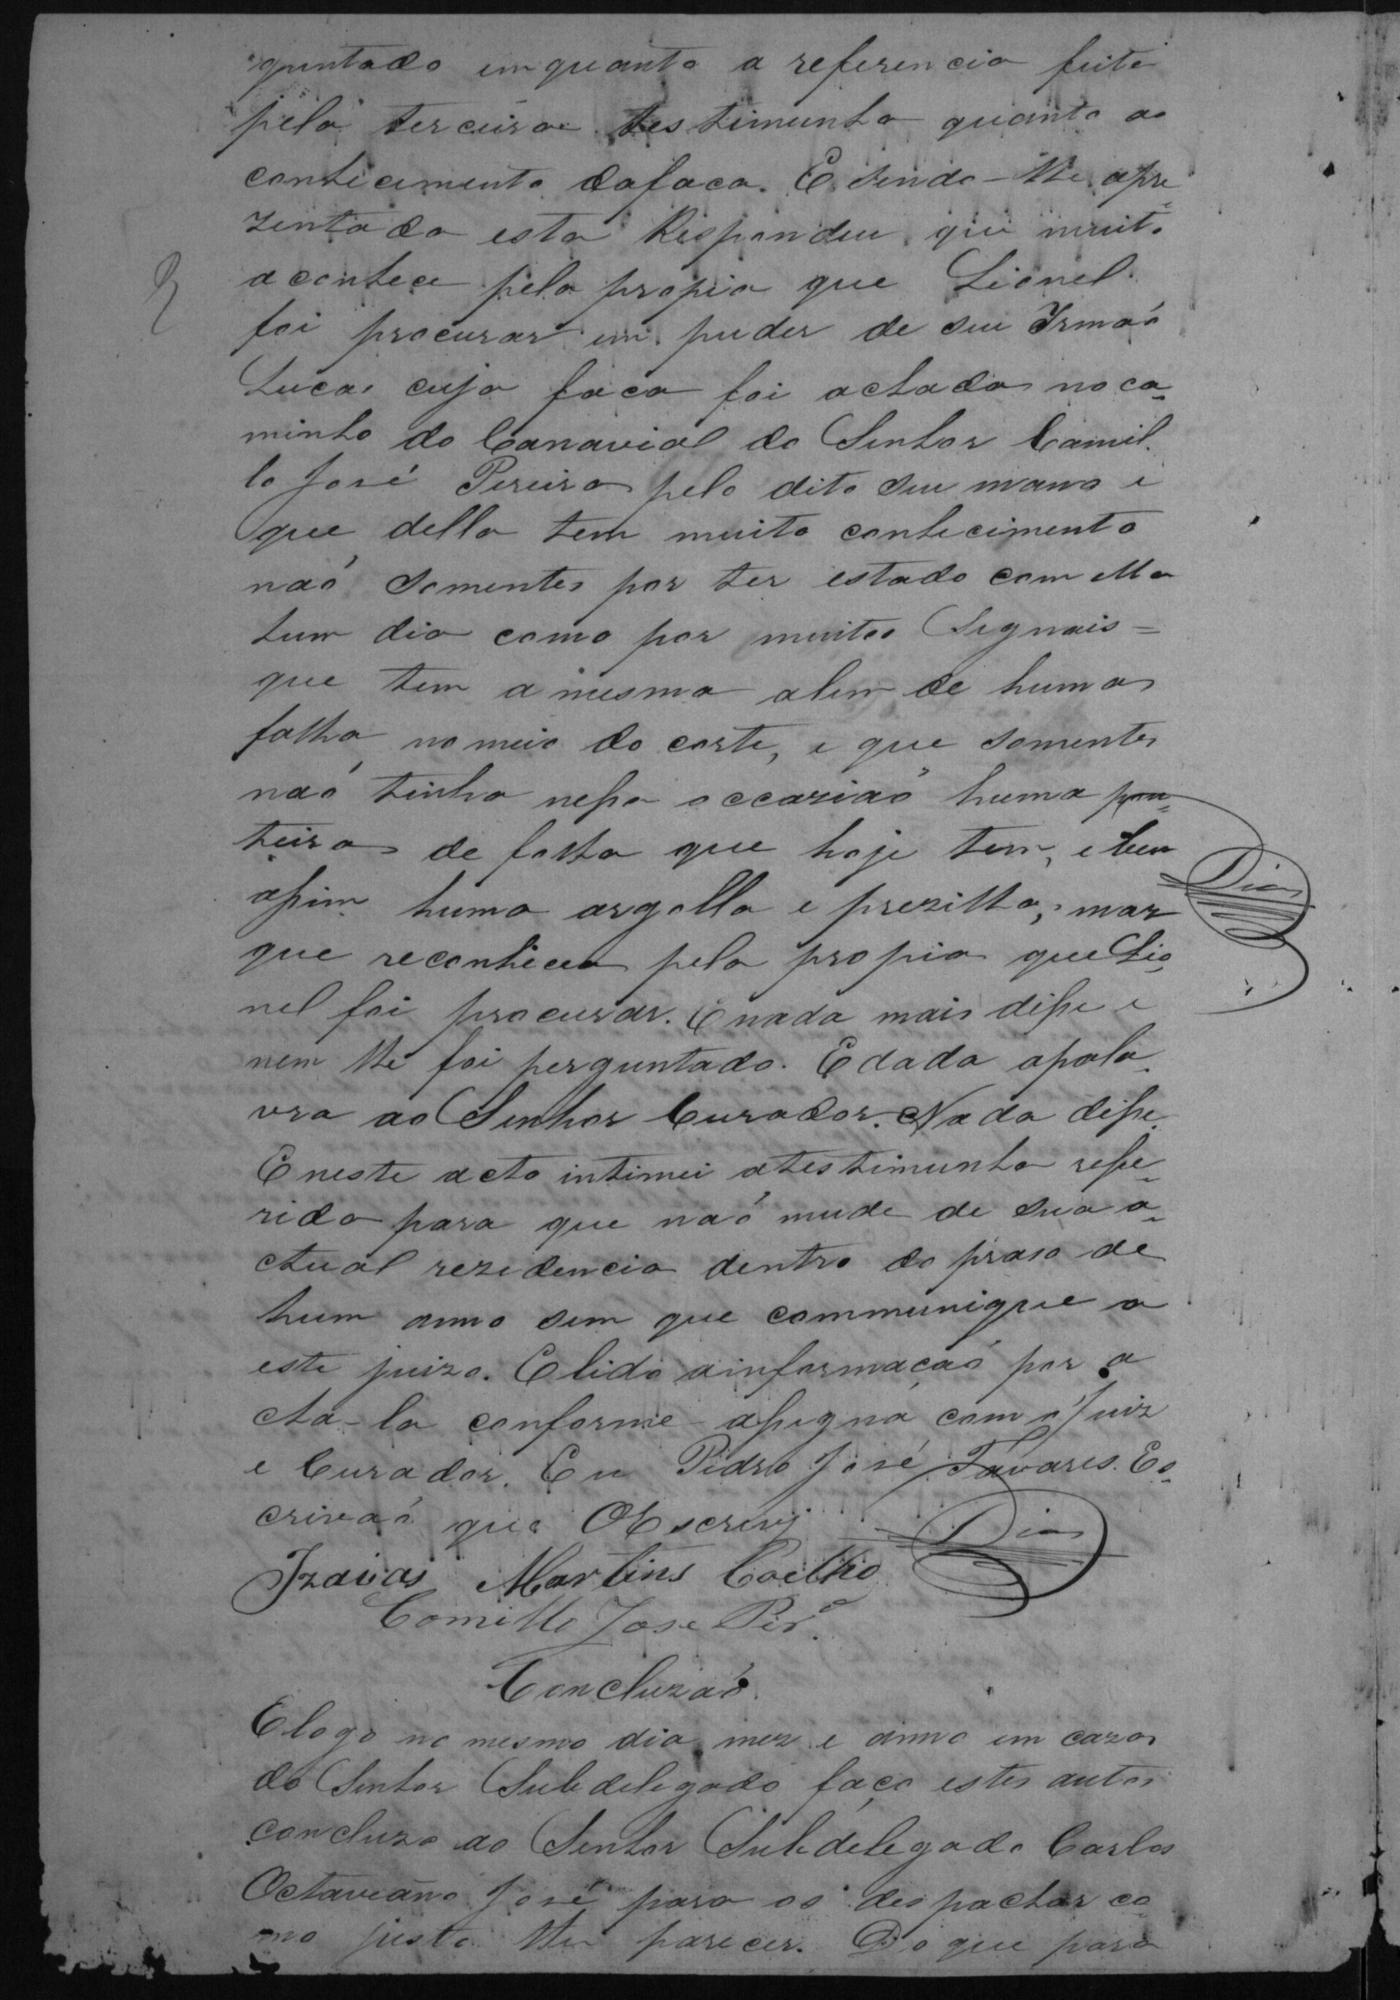 guntado emquanto a referencia feita
pela terceira testimunha quanto ao
conhecimento da faca. E sendo-lhe apre
zentada esta Respondeu que muito
a conhece pela propia que Lionel
foi procurar em puder de seu Irmaó
Lucas cuja faca foi achada no ca-
minho do Canavial do Senhor Camil-
lo José Pereira pelo dito seu mano e
que della tem muito conhecimento
naó somentes por ter estado com ella
hum dia como por muitos Signais=
que tem a mesma alem de huma
falha no meio do corte, e que somentes
naó tinha nessa occaziaó huma pon-
teira de folha que hoje tem, e bem
assim huma argolla e prezilha, mas
que reconheceo pela propia que Lio-
nel foi procurar. E nada mais disse e
nem lhe foi perguntado. E dada apala-
vra ao Senhor Curador. Nada disse.
E neste acto intimei a testimunha refe-
rida para que naó mude de sua a-
ctual rezidencia dentro do praso de
hum anno sem que communique a
este juizo. E lida a informaçaó por a
cha-la conforme assigna com o Juiz
e Curador. Eu Pedro José Tavares. Es-
crivaó que Escrevy
Dias
Dias
Izaias Martins Coelho
Camillo Jose Per.ª
Concluzaó.
E logo no mesmo dia mez e anno em caza
do Senhor Subdelegado faço estes autos
concluzo ao Senhor Subdelegado Carlos
Octaveano José para os despachar co
mo justo lhe parecer. Do que para